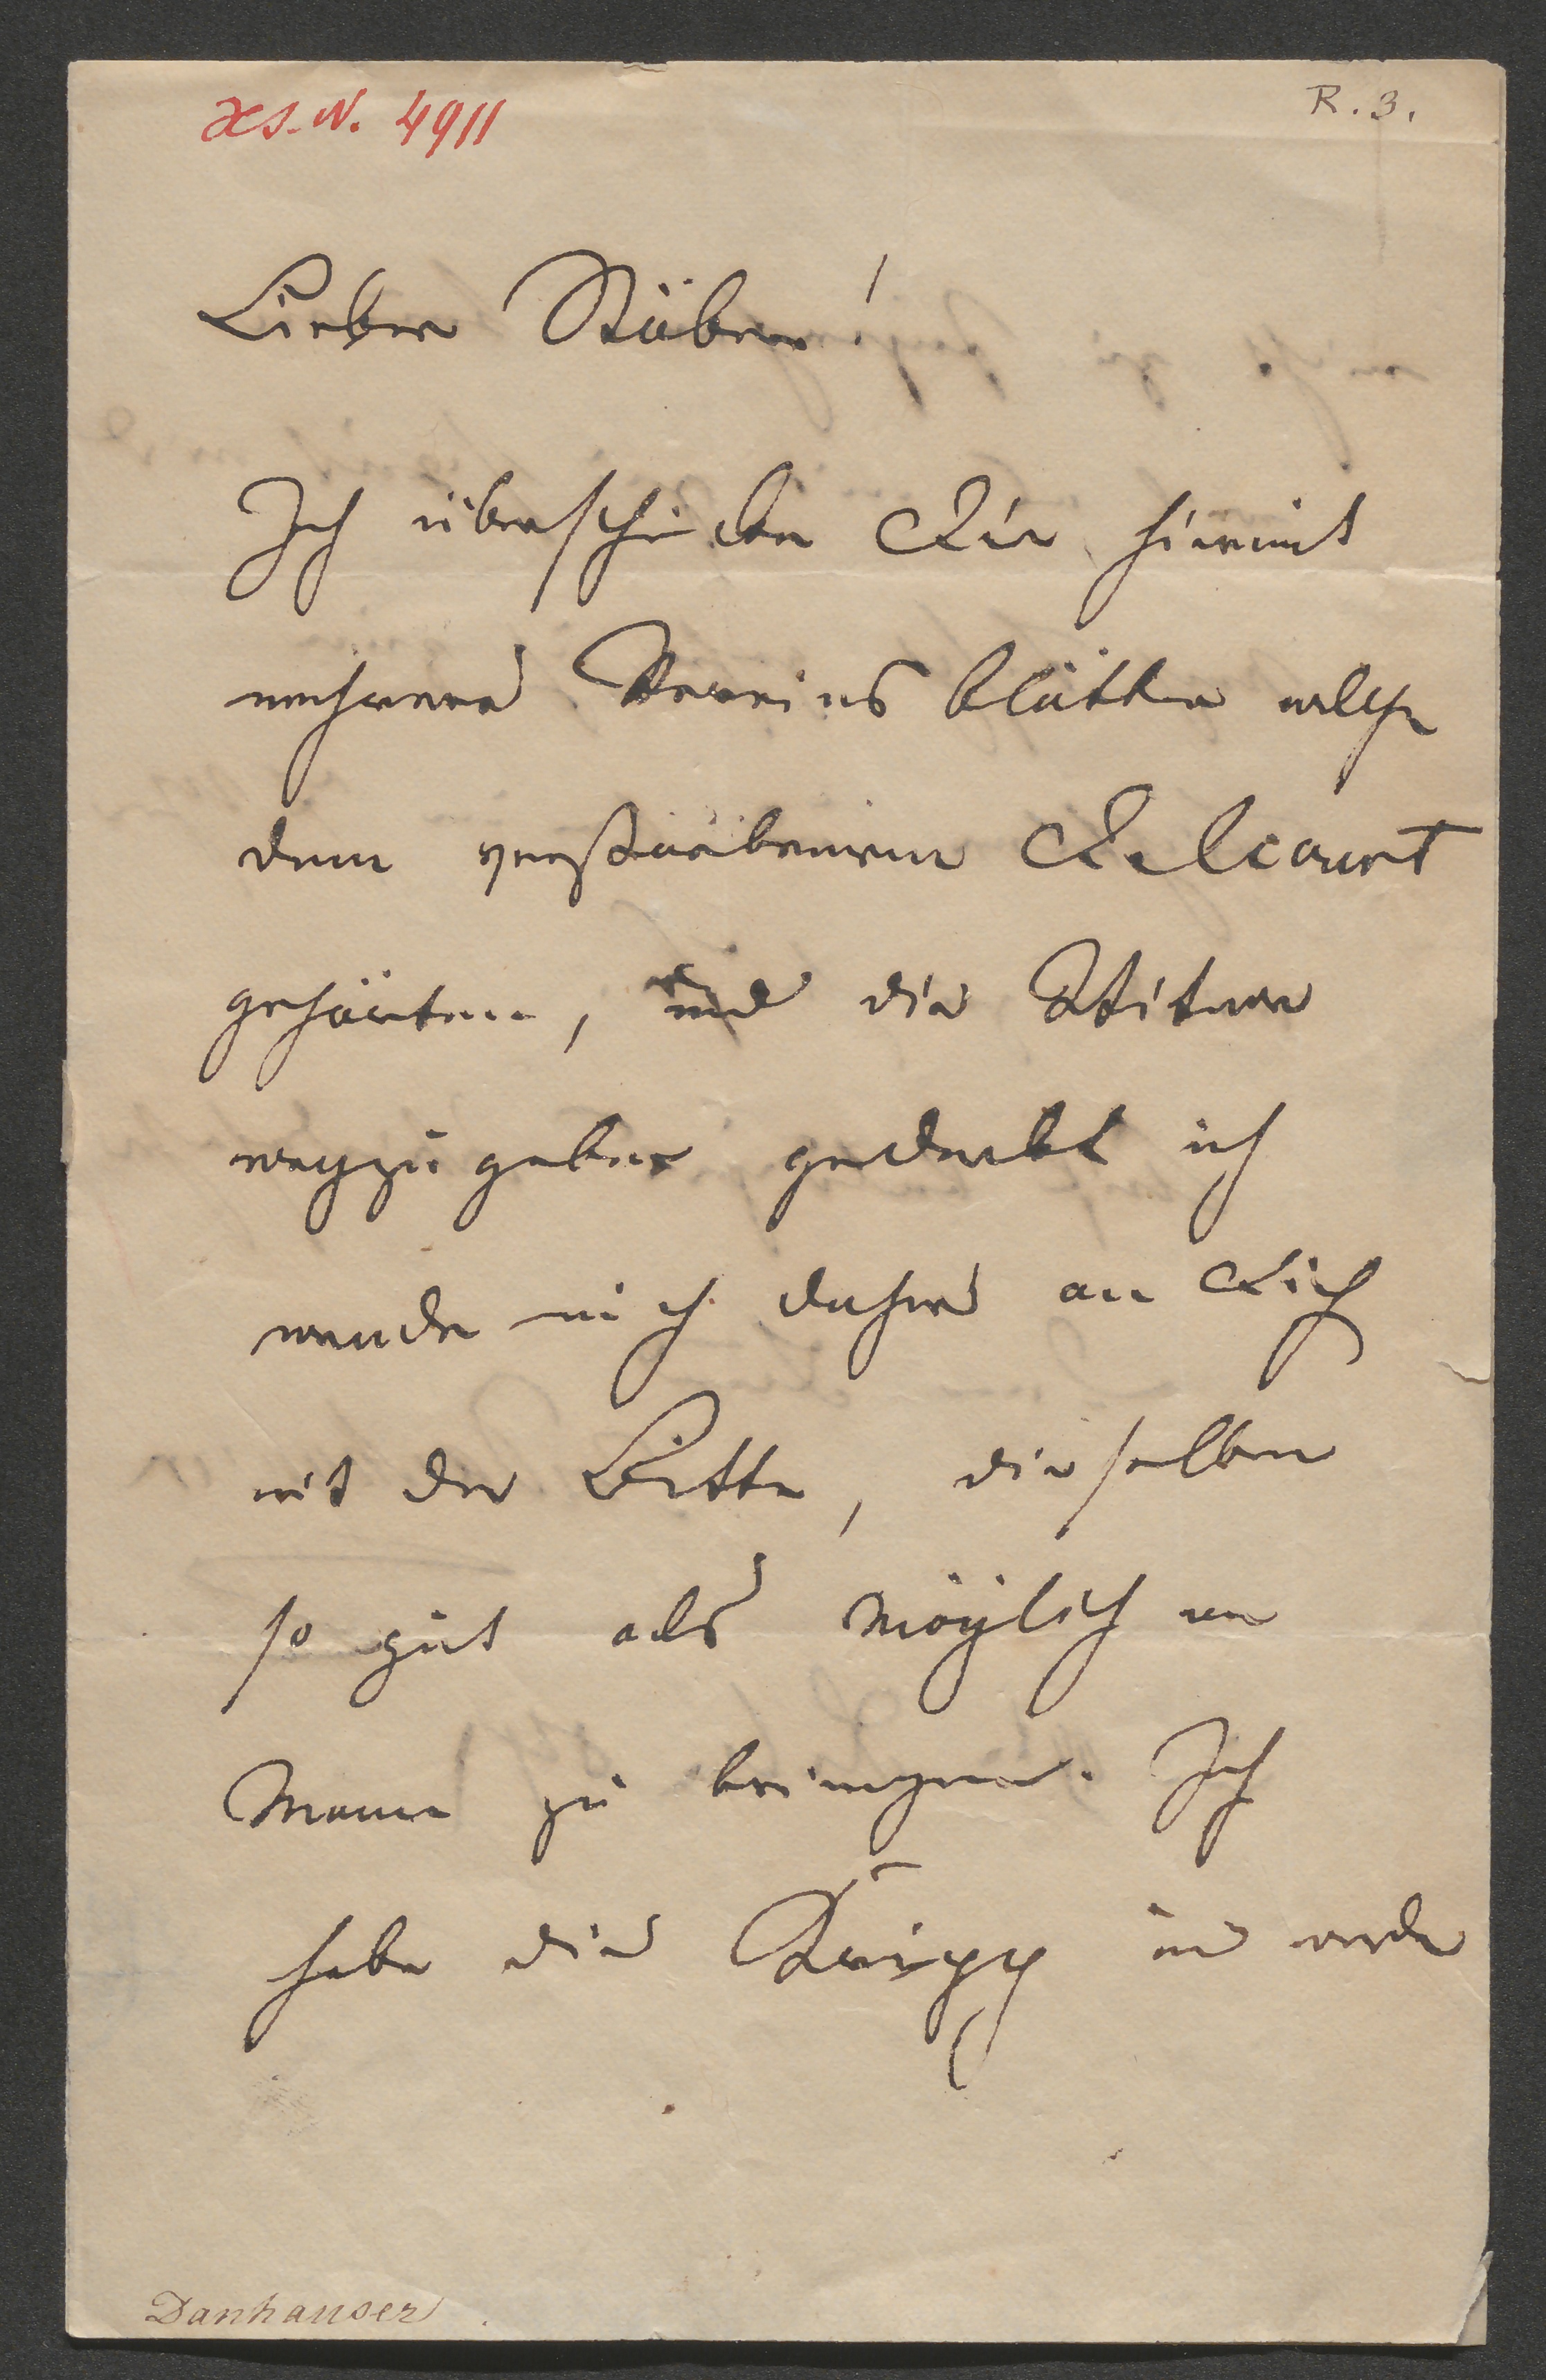 Hs. N. 4911
R. 3.
Lieber Stüber!
Ich überschicke Dir hiermit
mehrere Vereinsblätter welche
dem verstorbenen Delcourt
gehörten, und die Witwe
wegzugeben gedenkt ich
wende mich daher an Dich
mit der Bitte, dieselben
so gut als möglich an
Mann zu bringen. Ich
habe die Gripp und werde
Danhauser